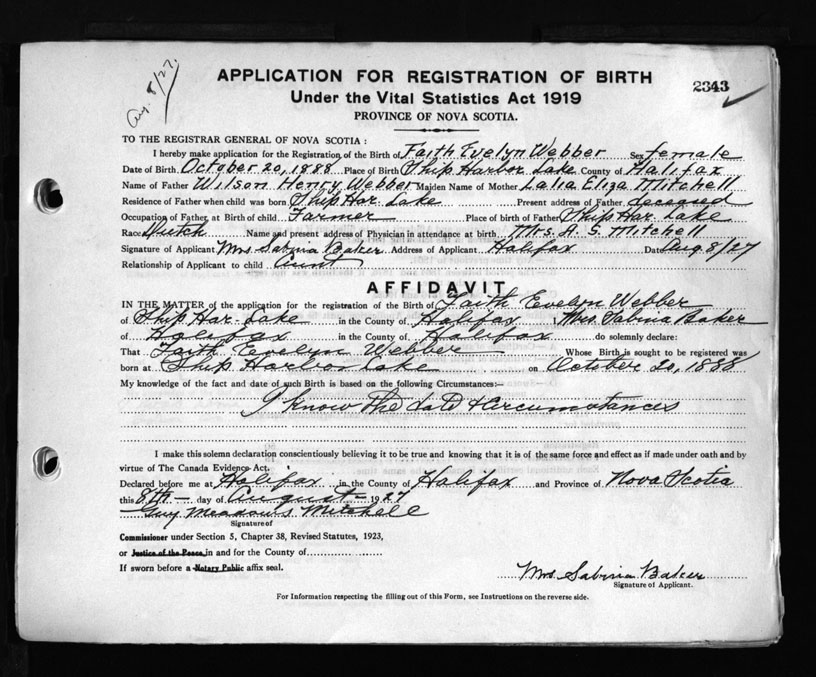 Aug. 8/27.
APPLICATION FOR REGISTRATION OF BIRTH
2343
Under the Vital Statistics Act 1919
PROVINCE OF NOVA SCOTIA.
TO THE REGISTRAR GENERAL OF NOVA SCOTIA :
I hereby make application for the Registration of the Birth of Faith Evelyn Webber Sex female
Date of Birth October 20, 1888 Place of Birth Ship Harbor Lake County of Halifax
Name of Father Wilson Henry Webber Maiden Name of Mother Lalia Eliza Mitchell
Residence of Father when child was born Ship Har. Lake Present address of Father deceased
Occupation of Father at Birth of child Farmer Place of birth of Father Ship Har. Lake
Race Dutch Name and present address of Physician in attendance at birth Mrs. A. S. Mitchell
Signature of Applicant Mrs Sabina Baker Address of Applicant Halifax Date Aug 8/27
Relationship of Applicant to child Aunt
AFFIDAVIT
IN THE MATTER of the application for the registration of the Birth of Faith Evelyn Webber
of Ship Har. Lake in the County of Halifax Mrs. Sabina Baker
of Halifax in the County of Halifax do solemnly declare:
That Faith Evelyn Webber Whose Birth is sought to be registered was
born at Ship Harbor Lake on October 20, 1888
My knowledge of the fact and date of such Birth is based on the following Circumstances:—
I know the date & circumstances
I make this solemn declaration conscientiously believing it to be true and knowing that it is of the same force and effect as if made under oath and by
virtue of The Canada Evidence Act.
Declared before me at Halifax in the County of Halifax and Province of Nova Scotia
this 8th — day of August — 1927
Guy Meadows Mitchell
Signature of
Commissioner under Section 5, Chapter 38, Revised Statutes, 1923,
or Justice of the Peace in and for the County of
If sworn before a Notary Public affix seal.
Mrs Sabina Baker
Signature of Applicant.
For Information respecting the filling out of this Form, see Instructions on the reverse side.